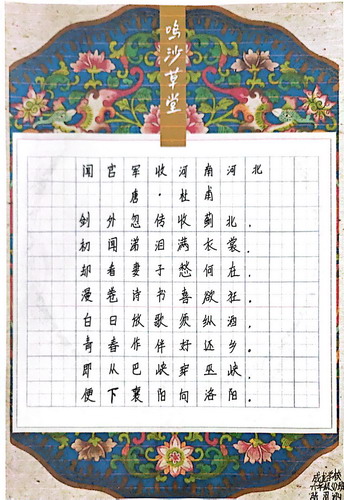 鸣沙草堂
闻官军收河南河北
唐·杜甫
剑外忽传收蓟北，
初闻涕泪满衣裳。
却看妻子愁何在，
漫卷诗书喜欲狂。
白日放歌须纵酒，
青春作伴好还乡。
即从巴峡穿巫峡，
便下襄阳向洛阳。